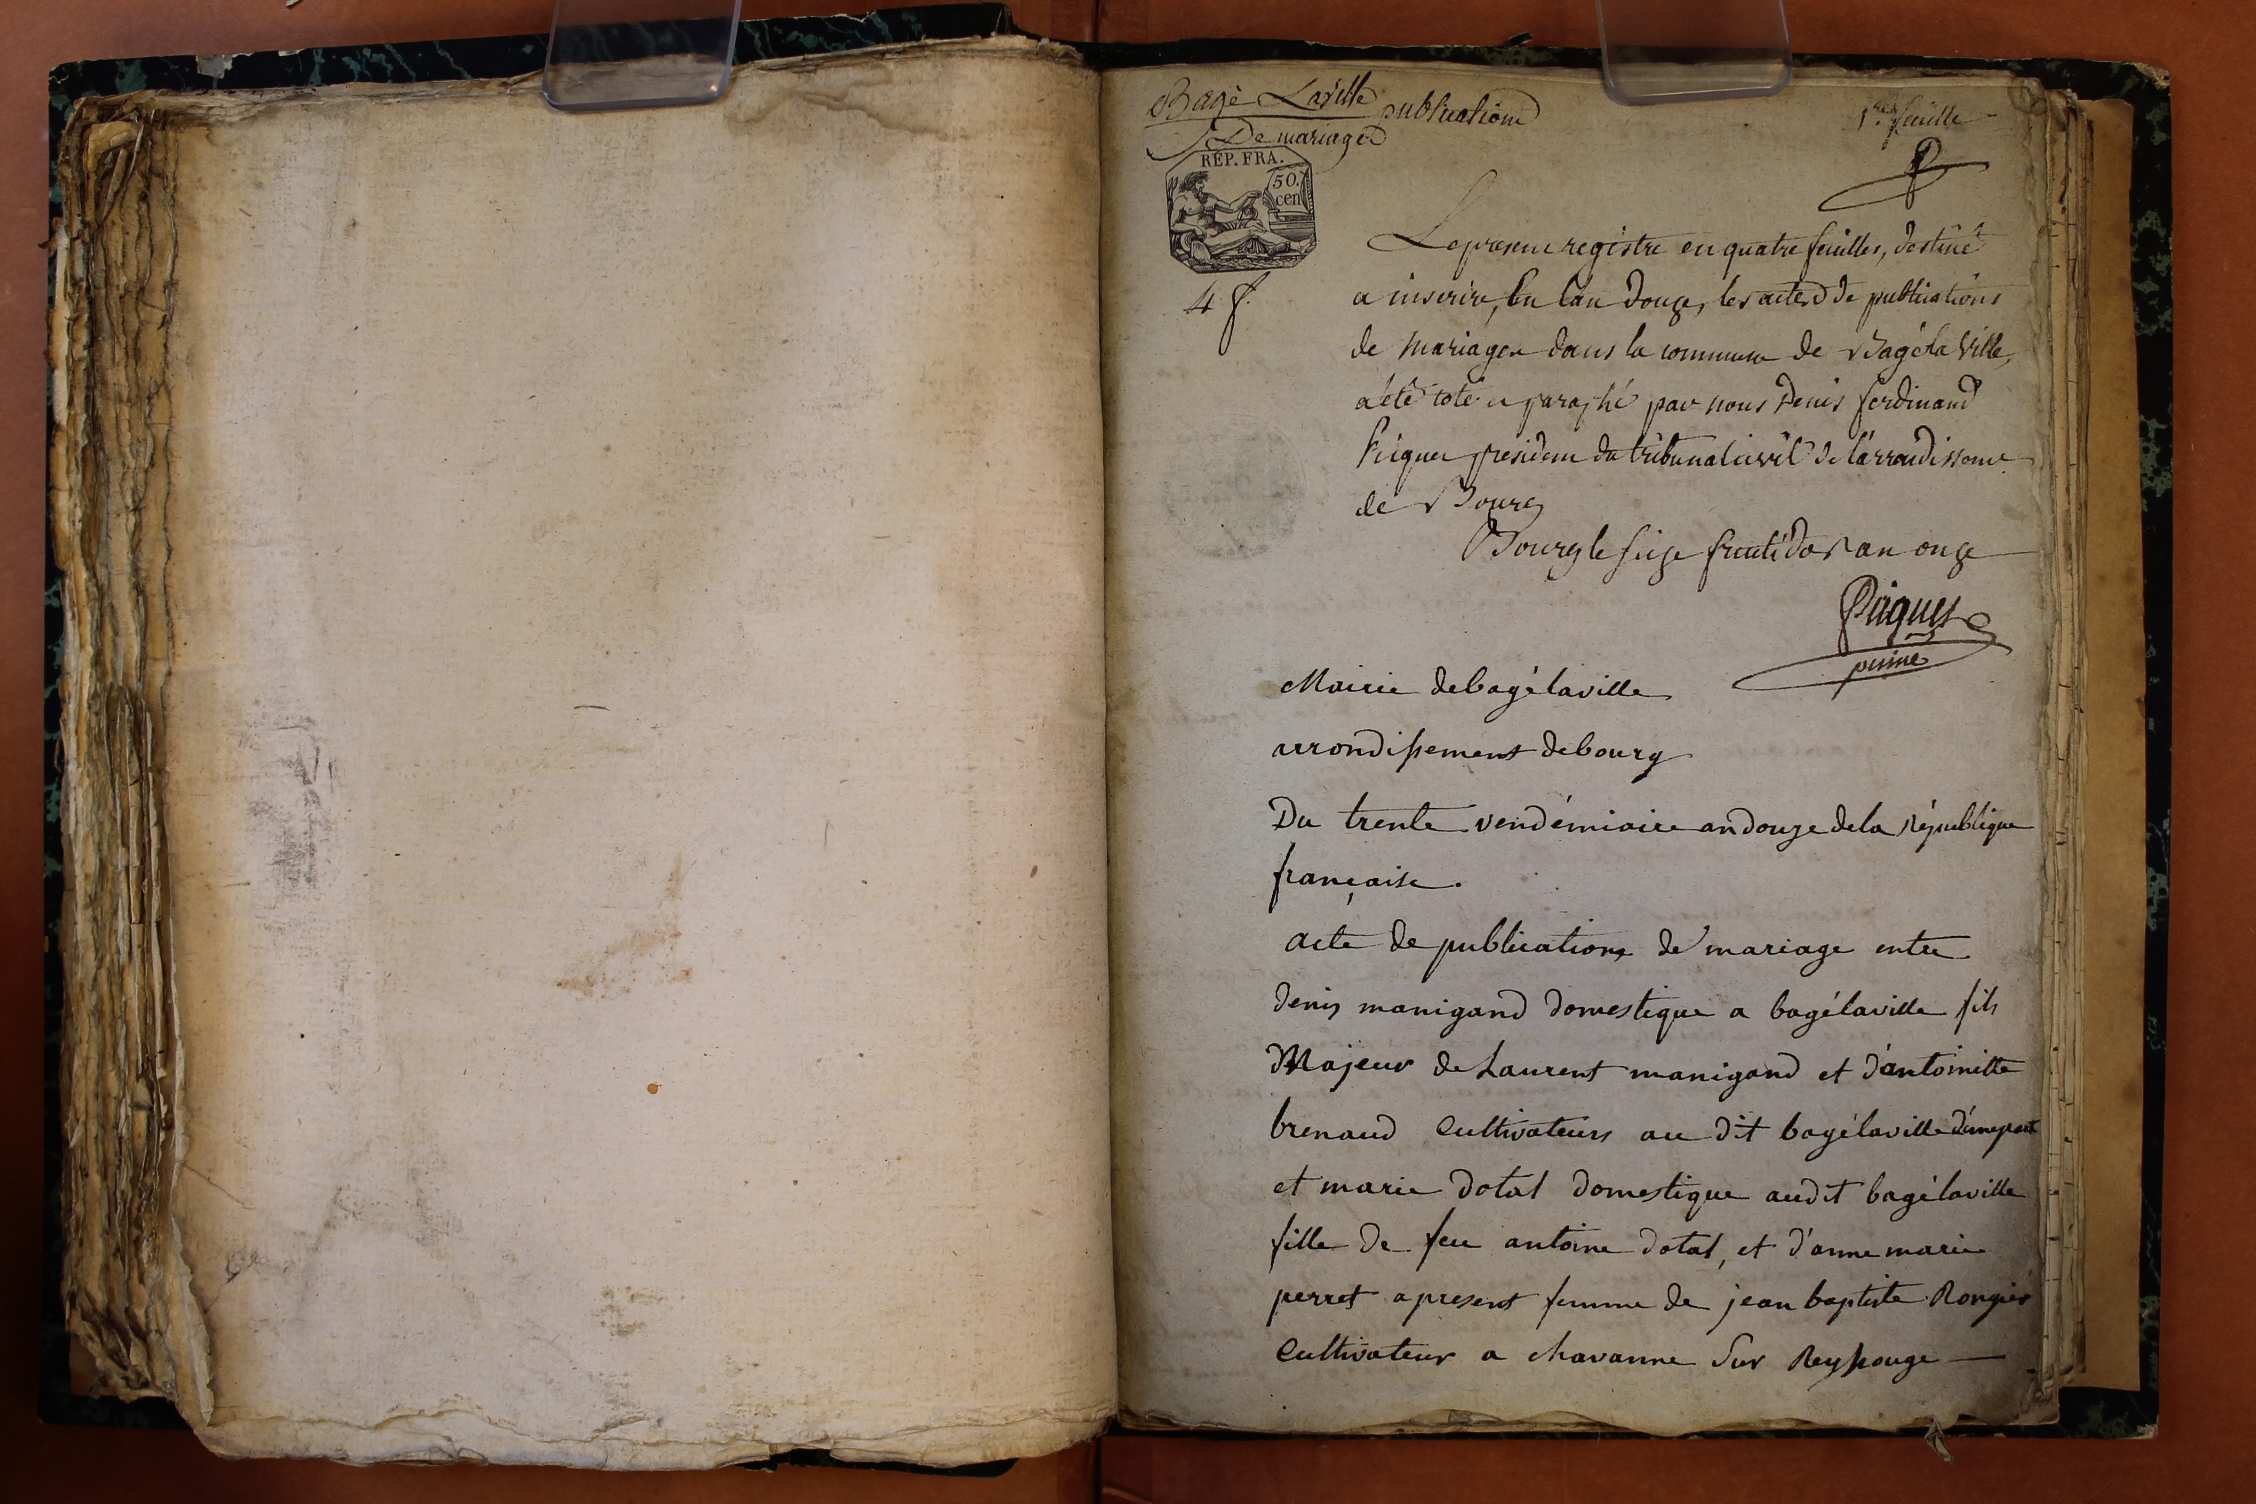 Bagé Laville publications
De mariages
1.re feuille
RÉP. FRA.
50.
cen
4 f.
Le présent registre en quatre feuilles, destiné
a inscrire, En l'an douze, les actes de publications
de mariages dans la commune de Bagé la Ville,
a été coté et paraphé par nous Denis ferdinand
président du tribunal civil de l'arrondissemt
de Bourg
Bourg le seize fructidor an onze
Mairie de bagé laville
arrondissement de bourg
Du trente vendémiaire an douze de la république
française.
acte de publications de mariage entre
denis manigand domestique a bagélaville fils
Majeur de Laurent manigand et d'antoinette
brenaud Cultivateurs au dit bagélaville d'une part
et marie dotal domestique audit bagélaville
fille de feu antoine dotal, et d'anne marie
perret apresent femme de jean baptiste Rongier
Cultivateur a chavanne Sur Reyssouze